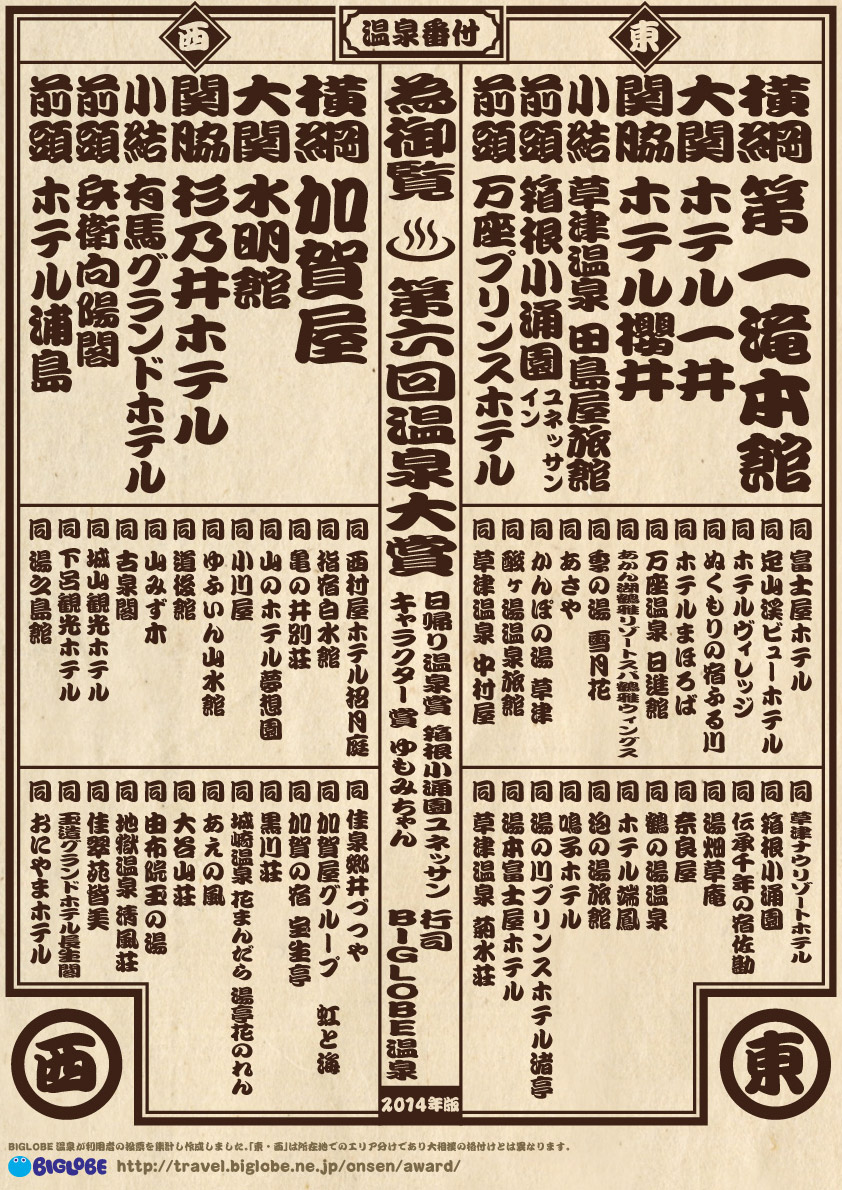 温泉番付
東
横綱 第一滝本館
大関 ホテル一井
関脇 ホテル櫻井
小結 草津温泉 田島屋旅館
前頭 箱根小涌園 ユネッサンイン
前頭 万座プリンスホテル
同 富士屋ホテル
同 定山渓ビューホテル
同 ホテルヴィレッジ
同 ぬくもりの宿ふる川
同 ホテルまほろば
同 万座温泉 日進館
同 あかん湖鶴雅リゾートスパ鶴雅ウィングス
同 季の湯 雪月花
同 あさや
同 かんぽの湯 草津
同 酸ヶ湯温泉旅館
同 草津温泉 中村屋
同 草津ナウリゾートホテル
同 箱根小涌園
同 伝承千年の宿佐勘
同 湯畑草庵
同 奈良屋
同 鶴の湯温泉
同 ホテル瑞鳳
同 泡の湯旅館
同 鳴子ホテル
同 湯の川プリンスホテル渚亭
同 湯本富士屋ホテル
同 草津温泉 菊水荘
東
為御覧 第六回温泉大賞
日帰り温泉賞 箱根小涌園ユネッサン
キャラクター賞 ゆもみちゃん
行司
BIGLOBE温泉
2014年版
西
横綱 加賀屋
大関 水明館
関脇 杉乃井ホテル
小結 有馬グランドホテル
前頭 兵衛向陽閣
前頭 ホテル浦島
同 西村屋ホテル招月庭
同 指宿白水館
同 亀の井別荘
同 山のホテル夢想園
同 小川屋
同 ゆふいん山水館
同 道後館
同 山みず木
同 古泉閣
同 城山観光ホテル
同 下呂観光ホテル
同 湯之島館
同 佳泉郷井づつや
同 加賀屋グループ 虹と海
同 加賀の宿 宝生亭
同 黒川荘
同 城崎温泉 花まんだら 湯亭花のれん
同 あえの風
同 大谷山荘
同 由布院玉の湯
同 地獄温泉 清風荘
同 佳翠苑皆美
同 玉造グランドホテル長生閣
同 おにやまホテル
西
BIGLOBE温泉が利用者の投票を集計し作成しました。「東・西」は所在地でのエリア分けであり大相撲の格付けとは異なります。
BIGLOBE http://travel.biglobe.ne.jp/onsen/award/